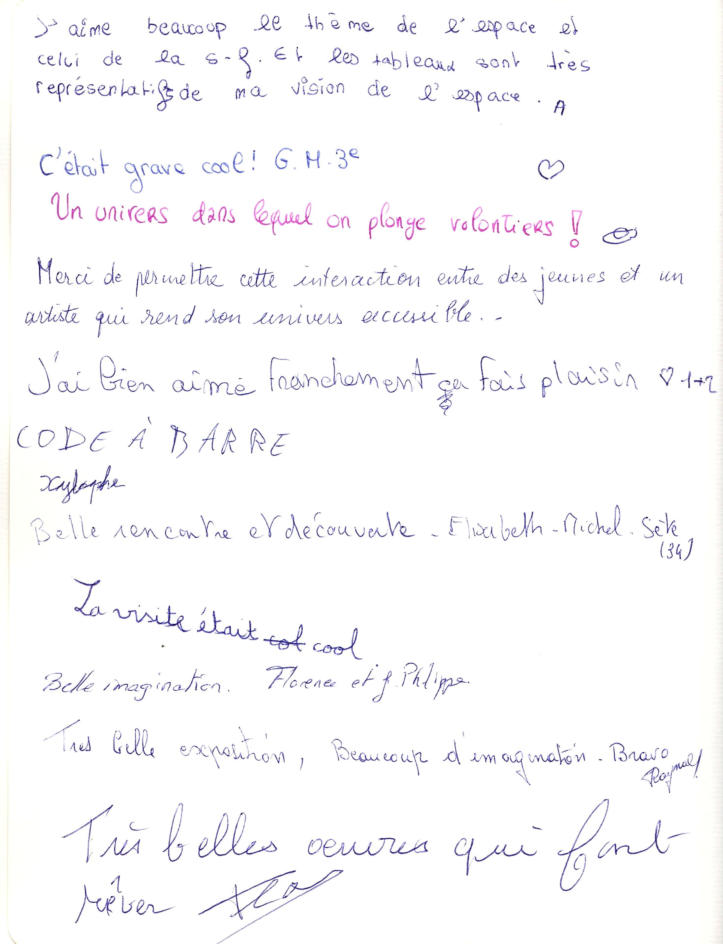 J'aime beaucoup le thème de l'espace et
celui de la s-f. Et les tableaux sont très
représentatifs de ma vision de l'espace. A
C'était grave cool! G.M. 3e
Un univers dans lequel on plonge volontiers !
Merci de permettre cette interaction entre des jeunes et un
artiste qui rend son univers accessible..
J'ai bien aimé franchement ça fais plaisir ♡ 1+2
CODE À BARRE
xylophe
Belle rencontre et découverte - Elisabeth - Michel. Sète
(34)
La visite était cool
Belle imagination. Florence et J. Philippe
Très belle exposition, Beaucoup d'imagination. Bravo
Très belles oeuvres qui font
rêver